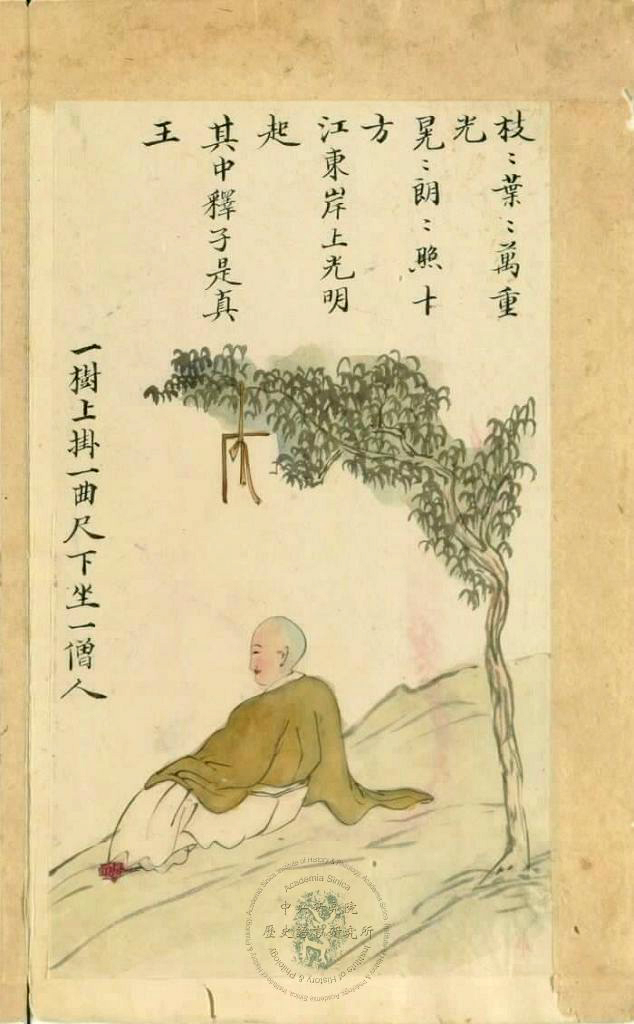 枝〻葉〻萬重
光
晃〻朗〻照十
方
江東岸上光明
起
其中釋子是真
王
一樹上掛一曲尺下坐一僧人
中央研究院
歷史語言研究所
Academia Sinica
Institute of History & Philology